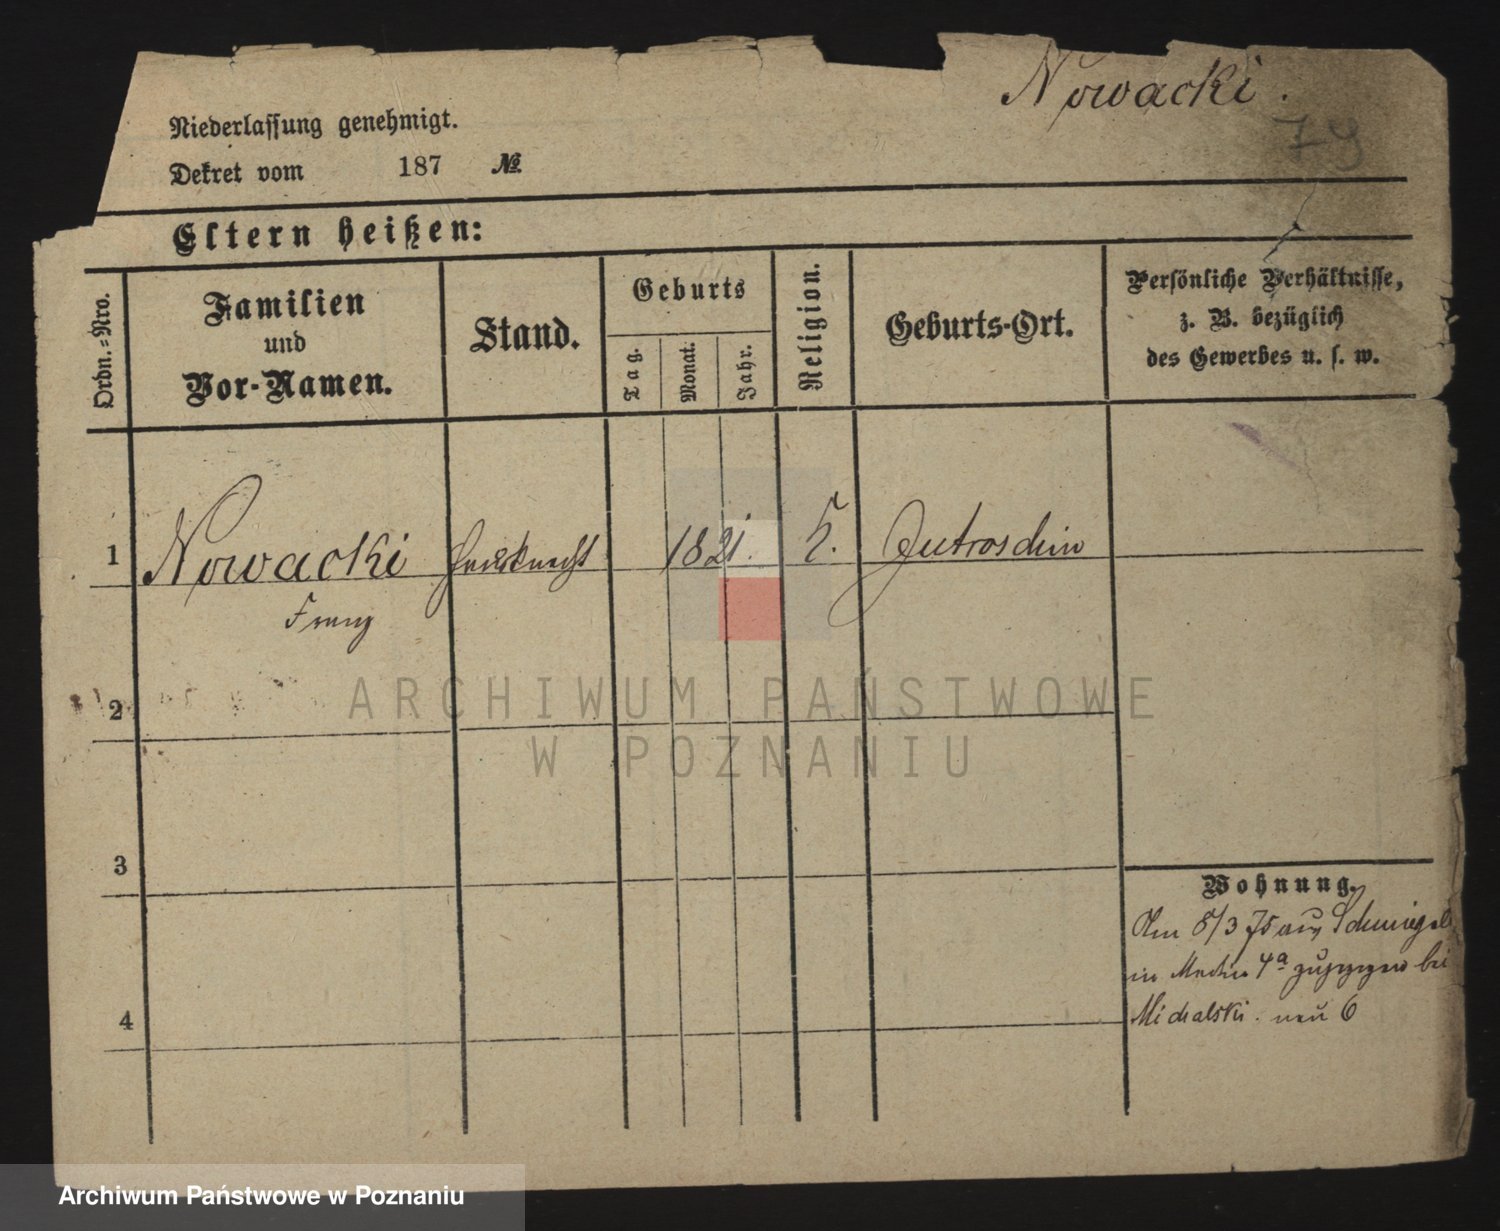 Nowacki.
79
Niederlassung genehmigt.
Dekret vom 187 №
Eltern heißen:
Ordn.=Nro.
Familien
und
Vor-Namen.
Stand.
Geburts
Tag.
Monat.
Jahr.
Religion.
Geburts-Ort.
Persönliche Verhältnisse,
z. B. bezüglich
des Gewerbes u. s. w.
1 Nowacki 1821. Jutroschin
Franz
2
3
4
Wohnung.
Am 8/3 75 aus Schmiegel
in 4a zugezogen bei
Michalski. neu 6
ARCHIWUM PAŃSTWOWE
W POZNANIU
Archiwum Państwowe w Poznaniu